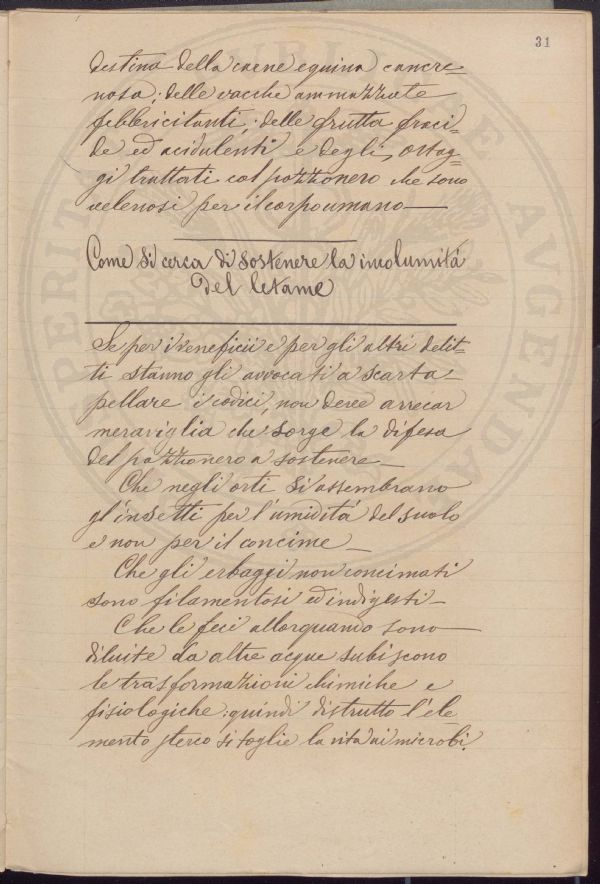 31
destina della carne equina cancre=
nosa; delle vacche ammazzate
febbricitanti; delle frutta fraci=
de ed acidulenti e degli ortag=
gi trattati col pozzonero che sono
velenosi per il corpo umano—
Come si cerca di sostenere la incolumitá
del letame
Se per i veneficii e per gli altri delit=
ti stanno gli avvocati a scarta
pellare i codici, non deve arrecar
meraviglia che sorge la difesa
del pozzonero a sostenere—
Che negli orti si assembrano
gl'insetti per l'umiditá del suolo
e non per il concime—
Che gli erbaggi non concimati
sono filamentosi ed indigesti—
Che le feci allorquando sono
diluite da altre acque subiscono
le trasformazioni chimiche e
fisiologiche: quindi distrutto l'ele
mento sterco si toglie la vita ai microbi.